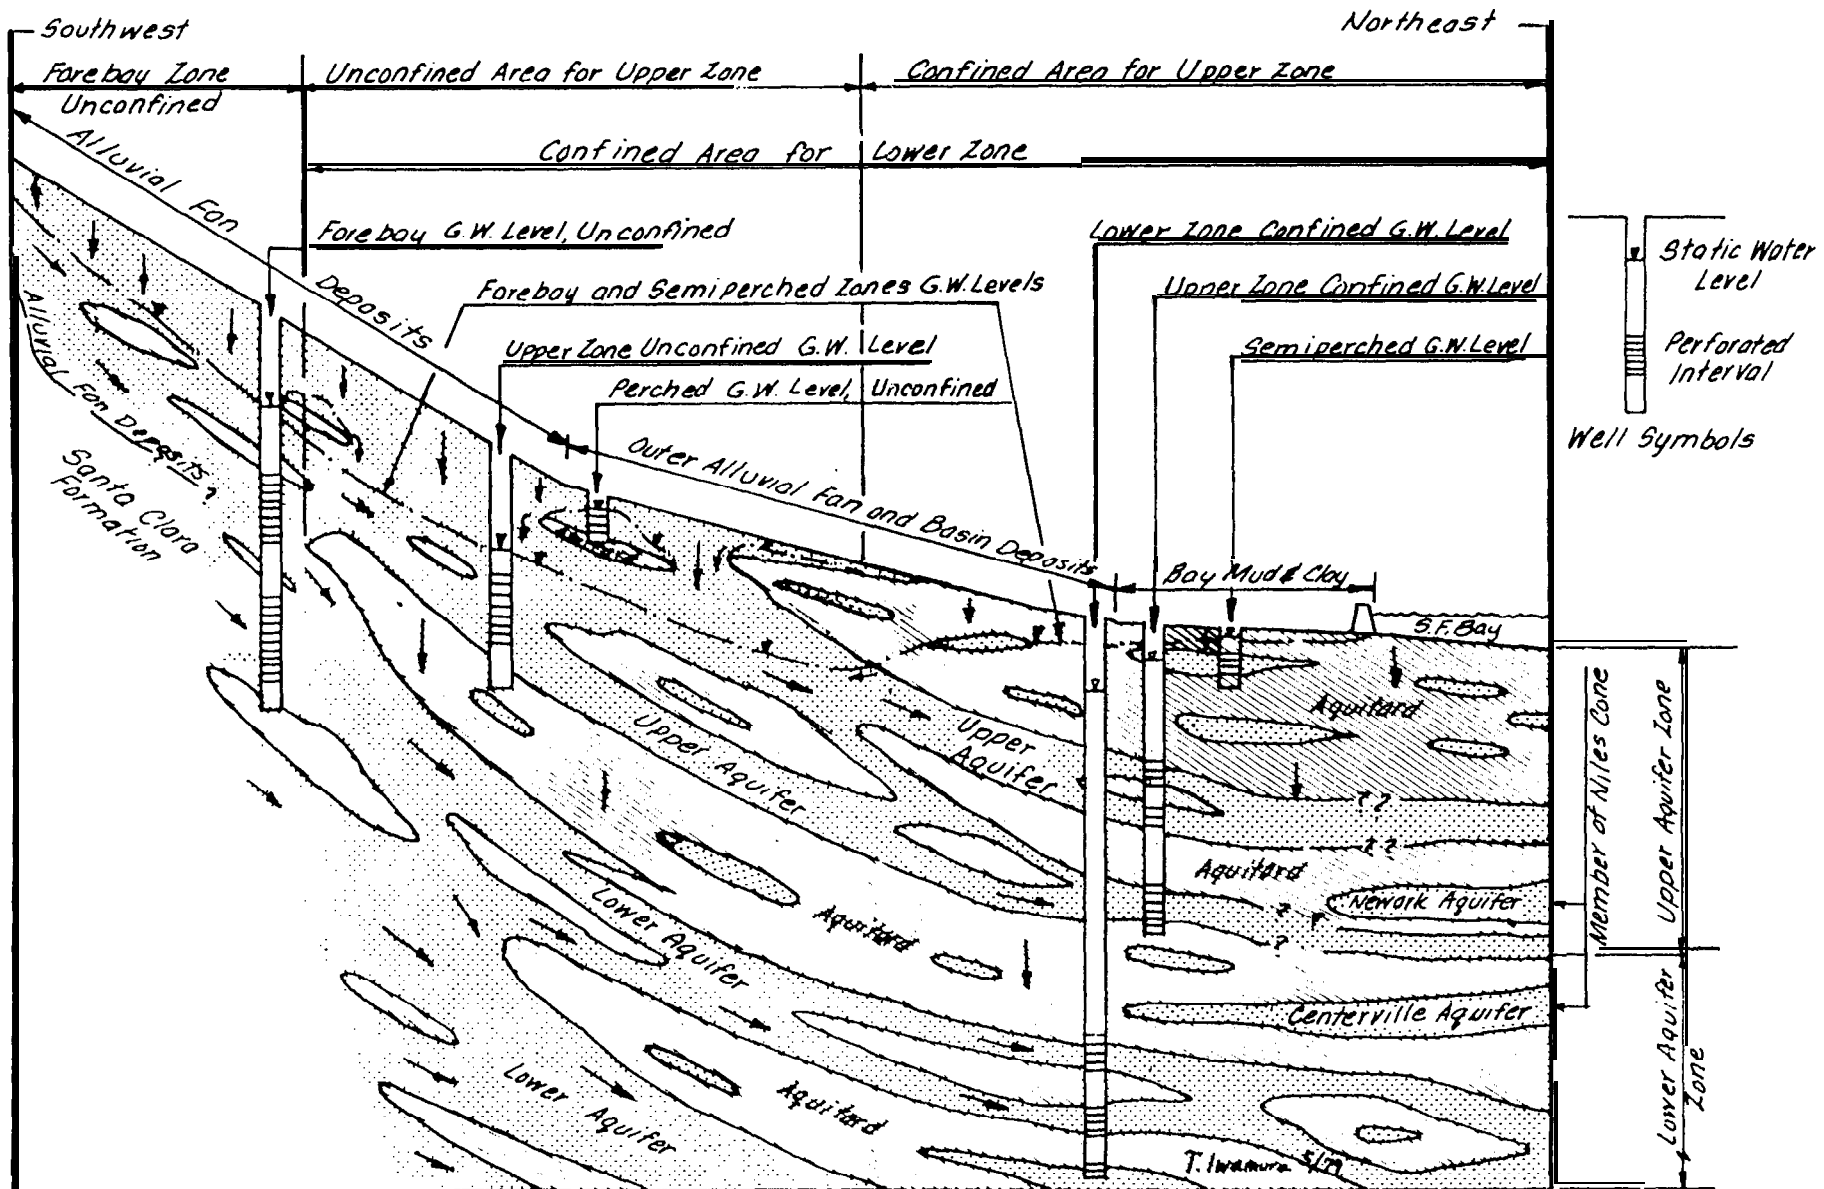 Southwest
Northeast
Forebay Zone
Unconfined
Unconfined Area for Upper Zone
Confined Area for Upper Zone
Confined Area for Lower Zone
Alluvial Fan Deposits
Forebay G.W. Level, Unconfined
Lower Zone Confined G.W. Level
Forebay and Semiperched Zones G.W. Levels
Upper Zone Confined G.W. Level
Upper Zone Unconfined G.W. Level
Semiperched G.W. Level
Perched G.W. Level, Unconfined
Static Water
Level
Perforated
Interval
Well Symbols
Alluvial Fan Deposits ?
Santa Clara
Formation
Outer Alluvial Fan and Basin Deposits
Bay Mud & Clay
S.F. Bay
Aquitard
Upper Aquifer
Upper
Aquifer
Aquitard
? ?
? ?
Aquitard
Newark Aquifer
?
?
Lower Aquifer
Aquitard
Centerville Aquifer
Lower
Aquifer
Aquitard
Member of Niles Cone
Upper Aquifer Zone
Lower Aquifer
Zone
T. Iwamura 5/79